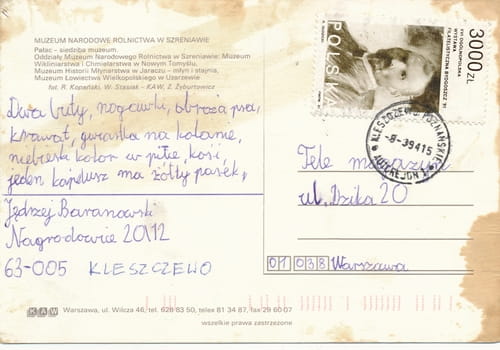 MUZEUM NARODOWE ROLNICTWA W SZRENIAWIE
Pałac – siedziba muzeum.
Oddziały Muzeum Narodowego Rolnictwa w Szreniawie: Muzeum
Wikliniarstwa i Chmielarstwa w Nowym Tomyślu,
Muzeum Historii Młynarstwa w Jaraczu – młyn i stajnia,
Muzeum Łowiectwa Wielkopolskiego w Uzarzewie
fot. R. Kopański, W. Stasiak – KAW, Z. Żyburtowicz
Dwa buty, nogawki, obroża psa,
krawat, gwiazdka na kolanie,
niebieski kolor w piłce, kość,
jeden kapelusz ma żółty pasek,
Jędrzej Baranowski
Nagrodowice 20/12
63-005 KLESZCZEWO
3000 ZŁ
XVI OGÓLNOPOLSKA
WYSTAWA
FILATELISTYCZNA BYDGOSZCZ '91
POLSKA
-8-394 15
Tele magazyn
ul. Dzika 20
01 038 Warszawa
KAW Warszawa, ul. Wilcza 46, tel. 628 83 50, telex 81 34 87, fax 29 60 07
wszelkie prawa zastrzeżone